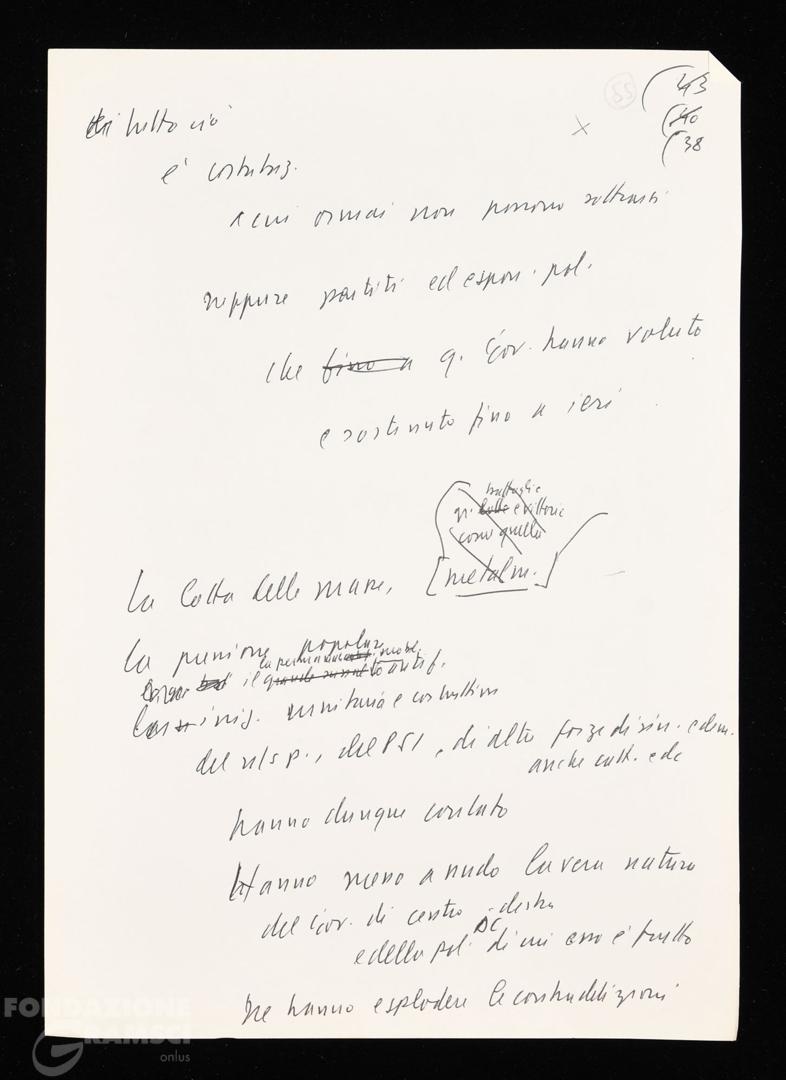 di tutto ciò
43
40
38
55
è costituz.
a cui ormai non possono sottrarsi
neppure partiti ed espon. pol.
che fino a q. Gov. hanno voluto
e sostenuto fino a ieri
battaglie
qr. lotte e vittorie
come quella
La lotta delle masse, [metalm.]
la pressione popolare
il grande antif.
iniz. unitaria e costruttiva
del n/s p., del PSI, e di altre forze di sin. e dem.
anche catt. e dc
hanno dunque contato
Hanno messo a nudo la vera natura
del Gov. di centro-destra
DC
e della pol. di cui esso è frutto
Ne hanno esplodere le contraddizioni
FONDAZIONE
GRAMSCI
onlus